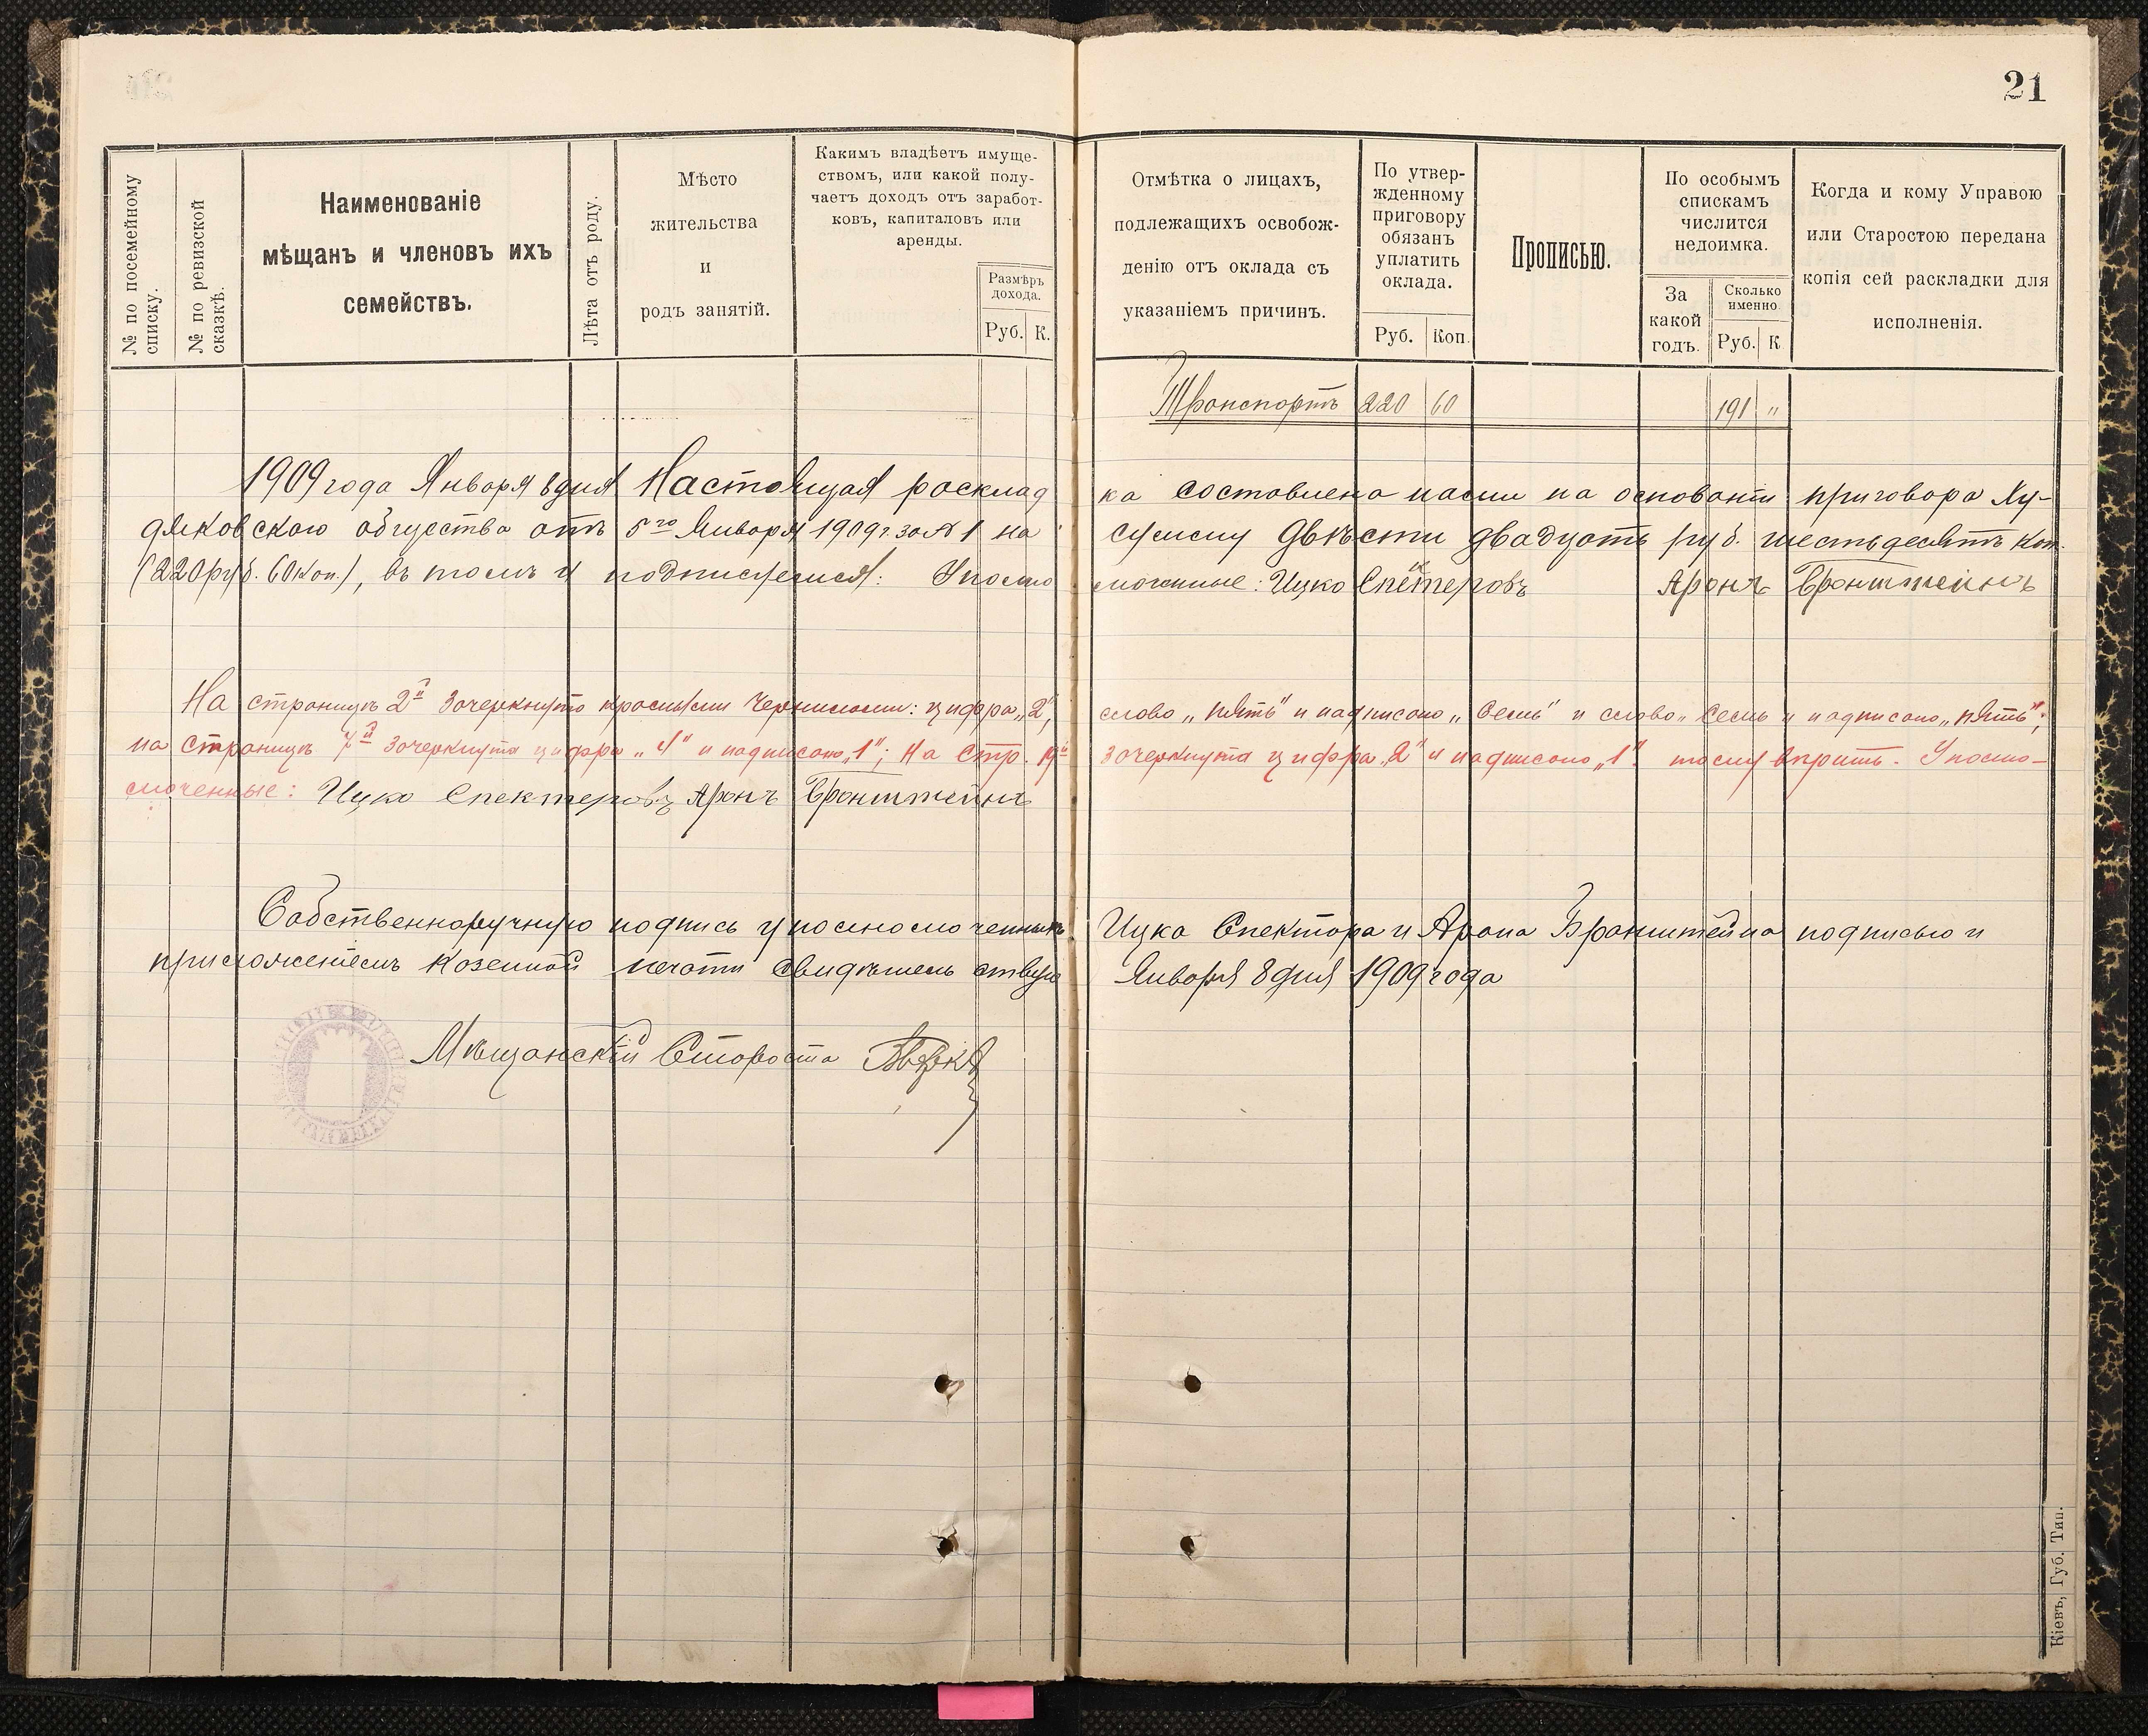 21
№ по посемейному списку.
№ по ревизской сказкѣ.
Наименованіе
мѣщанъ и членовъ ихъ
семействъ.
Лѣта отъ роду.
Мѣсто
жительства
и
родъ занятій.
Какимъ владѣетъ имуще-
ствомъ, или какой полу-
чаетъ доходъ отъ заработ-
ковъ, капиталовъ или
аренды.
Размѣръ
дохода.
Руб. К.
Отмѣтка о лицахъ,
подлежащихъ освобож-
денію отъ оклада съ
указаніемъ причинъ.
По утвер-
жденному
приговору
обязанъ
уплатить
оклада.
Руб. Коп.
Прописью.
По особымъ
спискамъ
числится
недоимка.
За
какой
годъ.
Сколько
именно.
Руб. К
Когда и кому Управою
или Старостою передана
копія сей раскладки для
исполненія.
Транспортъ 220 60 191 "
1909 года Января 8 дня Настоящая расклад ка составлена нами на основаніи приговора Ху-
дяковскаго общества отъ 5го Января 1909 г. за № 1 на сумму двѣсти двадцать руб. шестьдесятъ коп.
(220 руб. 60 коп.), въ томъ и подписуемся: Уполно моченные: Ицко Спектеровъ Аронъ Бронштейнъ
На страницѣ 2й зачеркнуто красными чернилами: цифра „2", слово „пять" и надписано „семь" и слово „семь и надписано „пять";
на страницѣ 7й зачеркнута цифра „4" и надписано „1"; На стр. 19й зачеркнута цифра „2" и надписано „1". тому вѣрить. Уполно-
моченные: Ицко Спектеровъ Аронъ Бронштейнъ
Собственноручную подпись уполномоченныхъ Ицка Спектора и Арона Бронштейна подписью и
приложеніемъ казенной печати свидѣтельствую Января 8 дня 1909 года
Мѣщанскій Староста
Кіевъ, Губ. Тип.